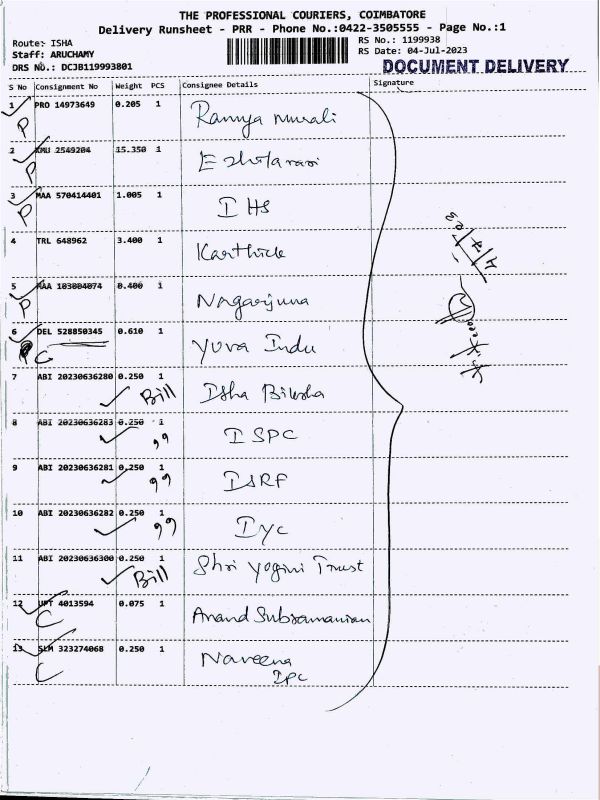 THE PROFESSIONAL COURIERS, COIMBATORE
Delivery Runsheet - PRR - Phone No.:0422-3505555 - Page No.:1
Route: ISHA
RS No.: 1199938
Staff: ARUCHAMY
RS Date: 04-Jul-2023
DRS No.: DCJB119993801
DOCUMENT DELIVERY
S No Consignment No Weight PCS Consignee Details Signature
1 PRO 14973649 0.205 1 Ramya Murali
P
2 KMU 2549204 15.350 1 Ezhilarasi
P
3 MAA 570414401 1.005 1 IHS
P
4 TRL 648962 3.400 1 Karthick
5 MAA 103004074 0.400 1 Nagarjuna
P
6 DEL 528850345 0.610 1 Yuva Indu
C
7 ABI 20230636280 0.250 1 Isha Biksha
Bill
8 ABI 20230636283 0.250 1 ISPC
99
9 ABI 20230636281 0.250 1 ISRF
99
10 ABI 20230636282 0.250 1 IYC
99
11 ABI 20230636300 0.250 1 Shri Yogini Trust
Bill
12 UPT 4013594 0.075 1 Anand Subramanian
C
13 SLM 323274068 0.250 1 Naveena
IPC
C